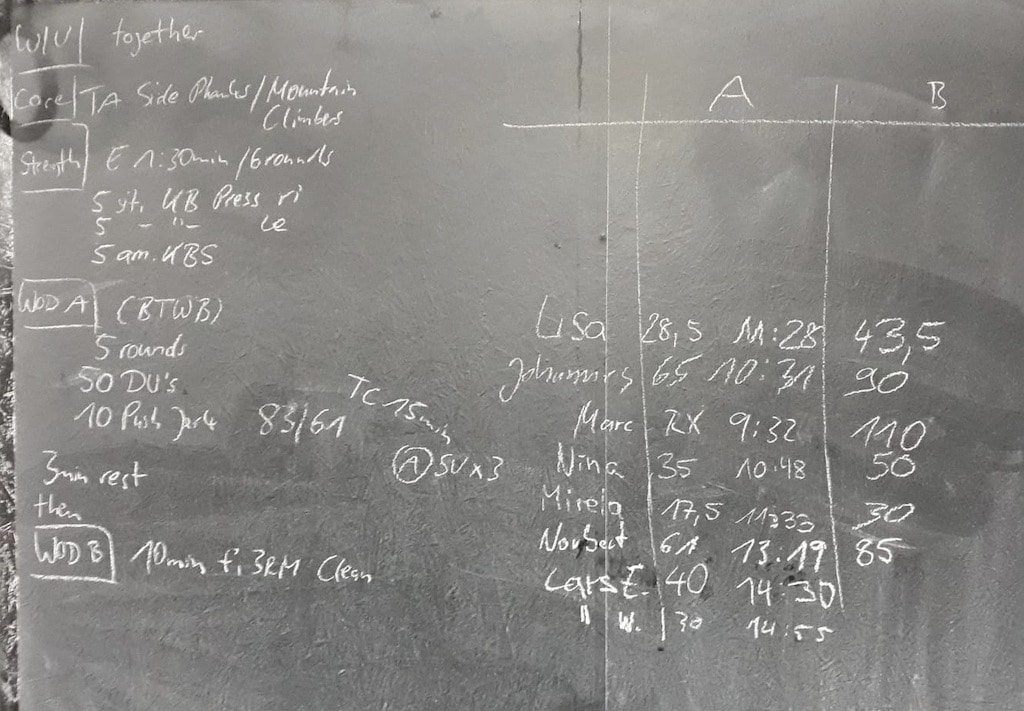 W/U/ together
Core/ TA Side Planks/Mountain
Climbers
Strength E 1:30min/6rounds
5 str. KB Press ri
5 - " - le
5 am. KBS
WOD A (BTWB)
5 rounds
50 DU's
10 Push Jerk 83/61
TC 15min
Ⓐ SU x 3
3min rest
then
WOD B 10min fi 3RM Clean
A B
Lisa 28,5 11:28 43,5
Johannes 65 10:31 90
Marc RX 9:32 110
Nina 35 10:48 50
Mireia 17,5 11:33 30
Norbert 61 13:19 85
Lars E. 40 14:30
" W. 30 14:55